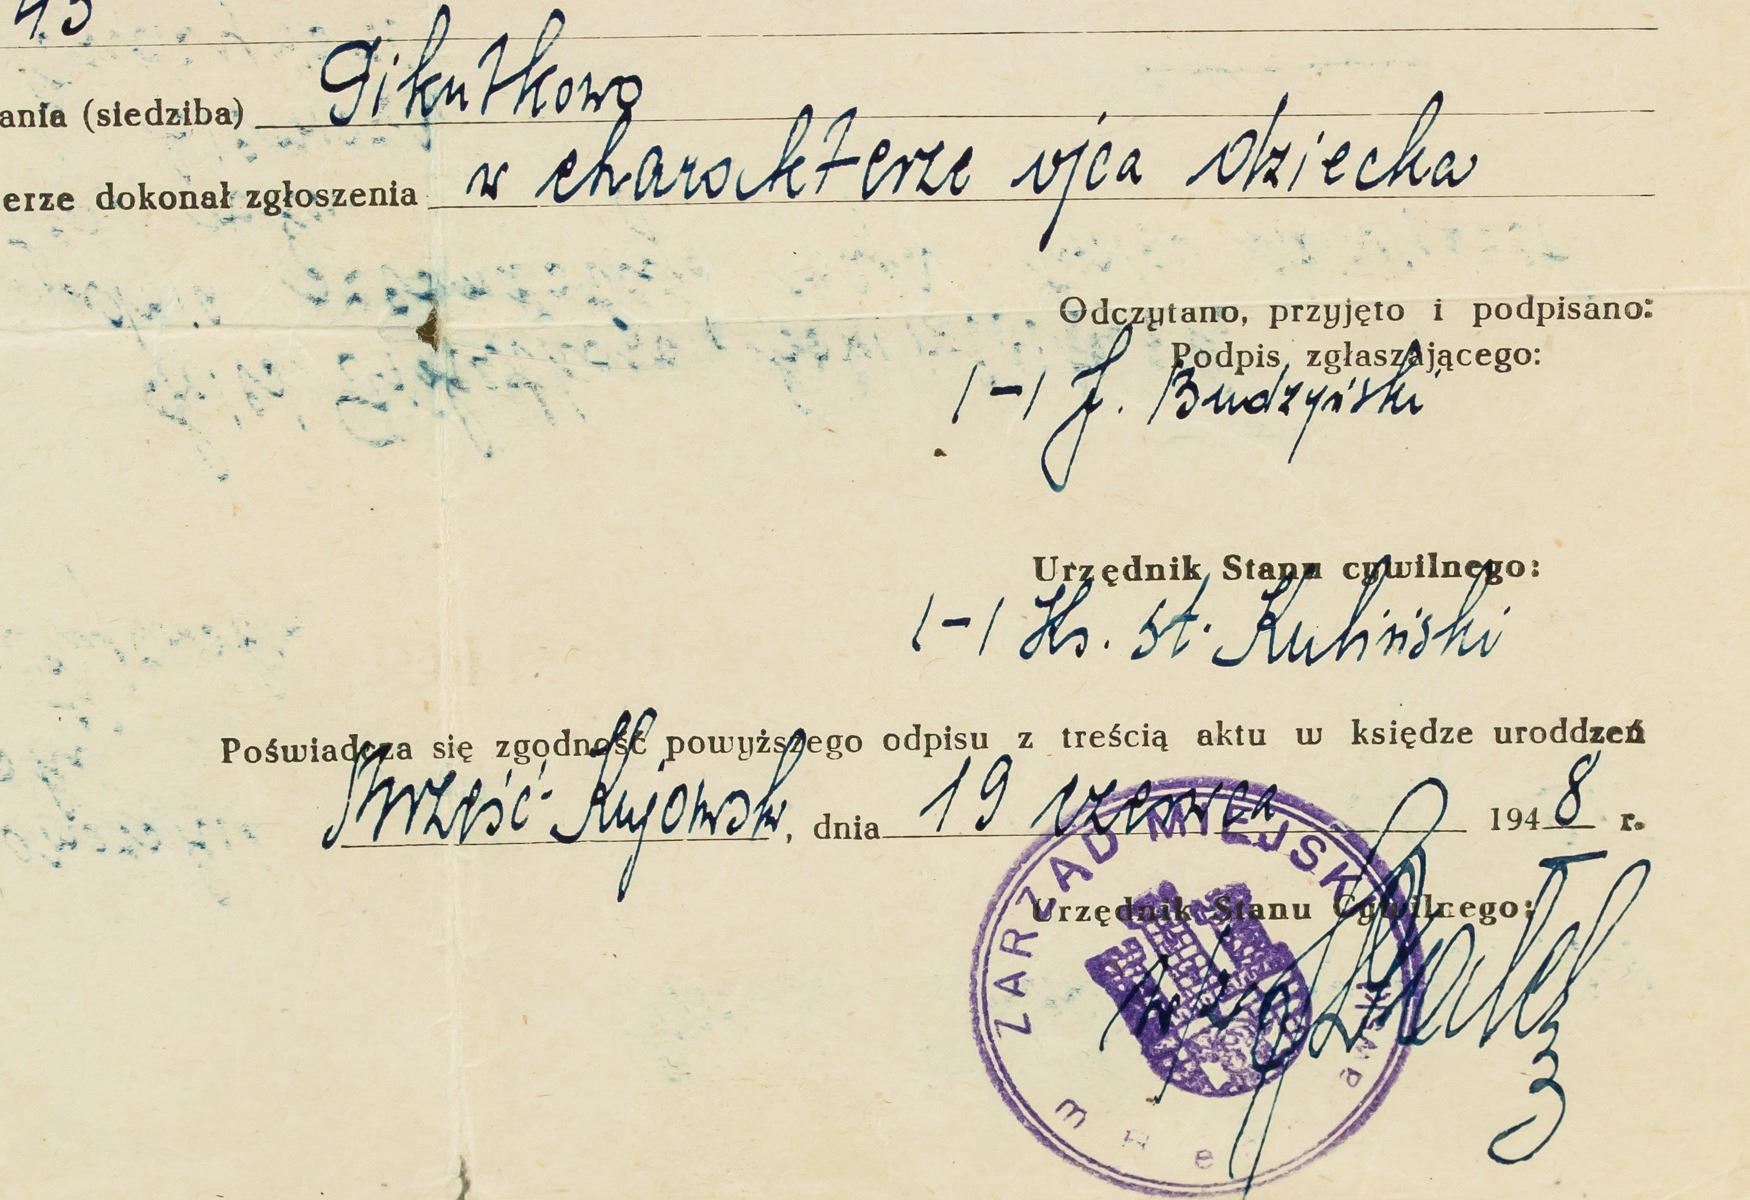 45
ania (siedziba) Gikutkowo
erze dokonał zgłoszenia w charakterze ojca dziecka
Odczytano, przyjęto i podpisano:
Podpis zgłaszającego:
/-/ J. Budzyński
Urzędnik Stanu cywilnego:
/-/ Ks. St. Kuliński
Poświadcza się zgodność powyższego odpisu z treścią aktu w księdze uroddzeń
Brześć-Kujawski, dnia 19 czerwca 1948 r.
Urzędnik Stanu Cywilnego:
ZARZĄD MIEJSKI